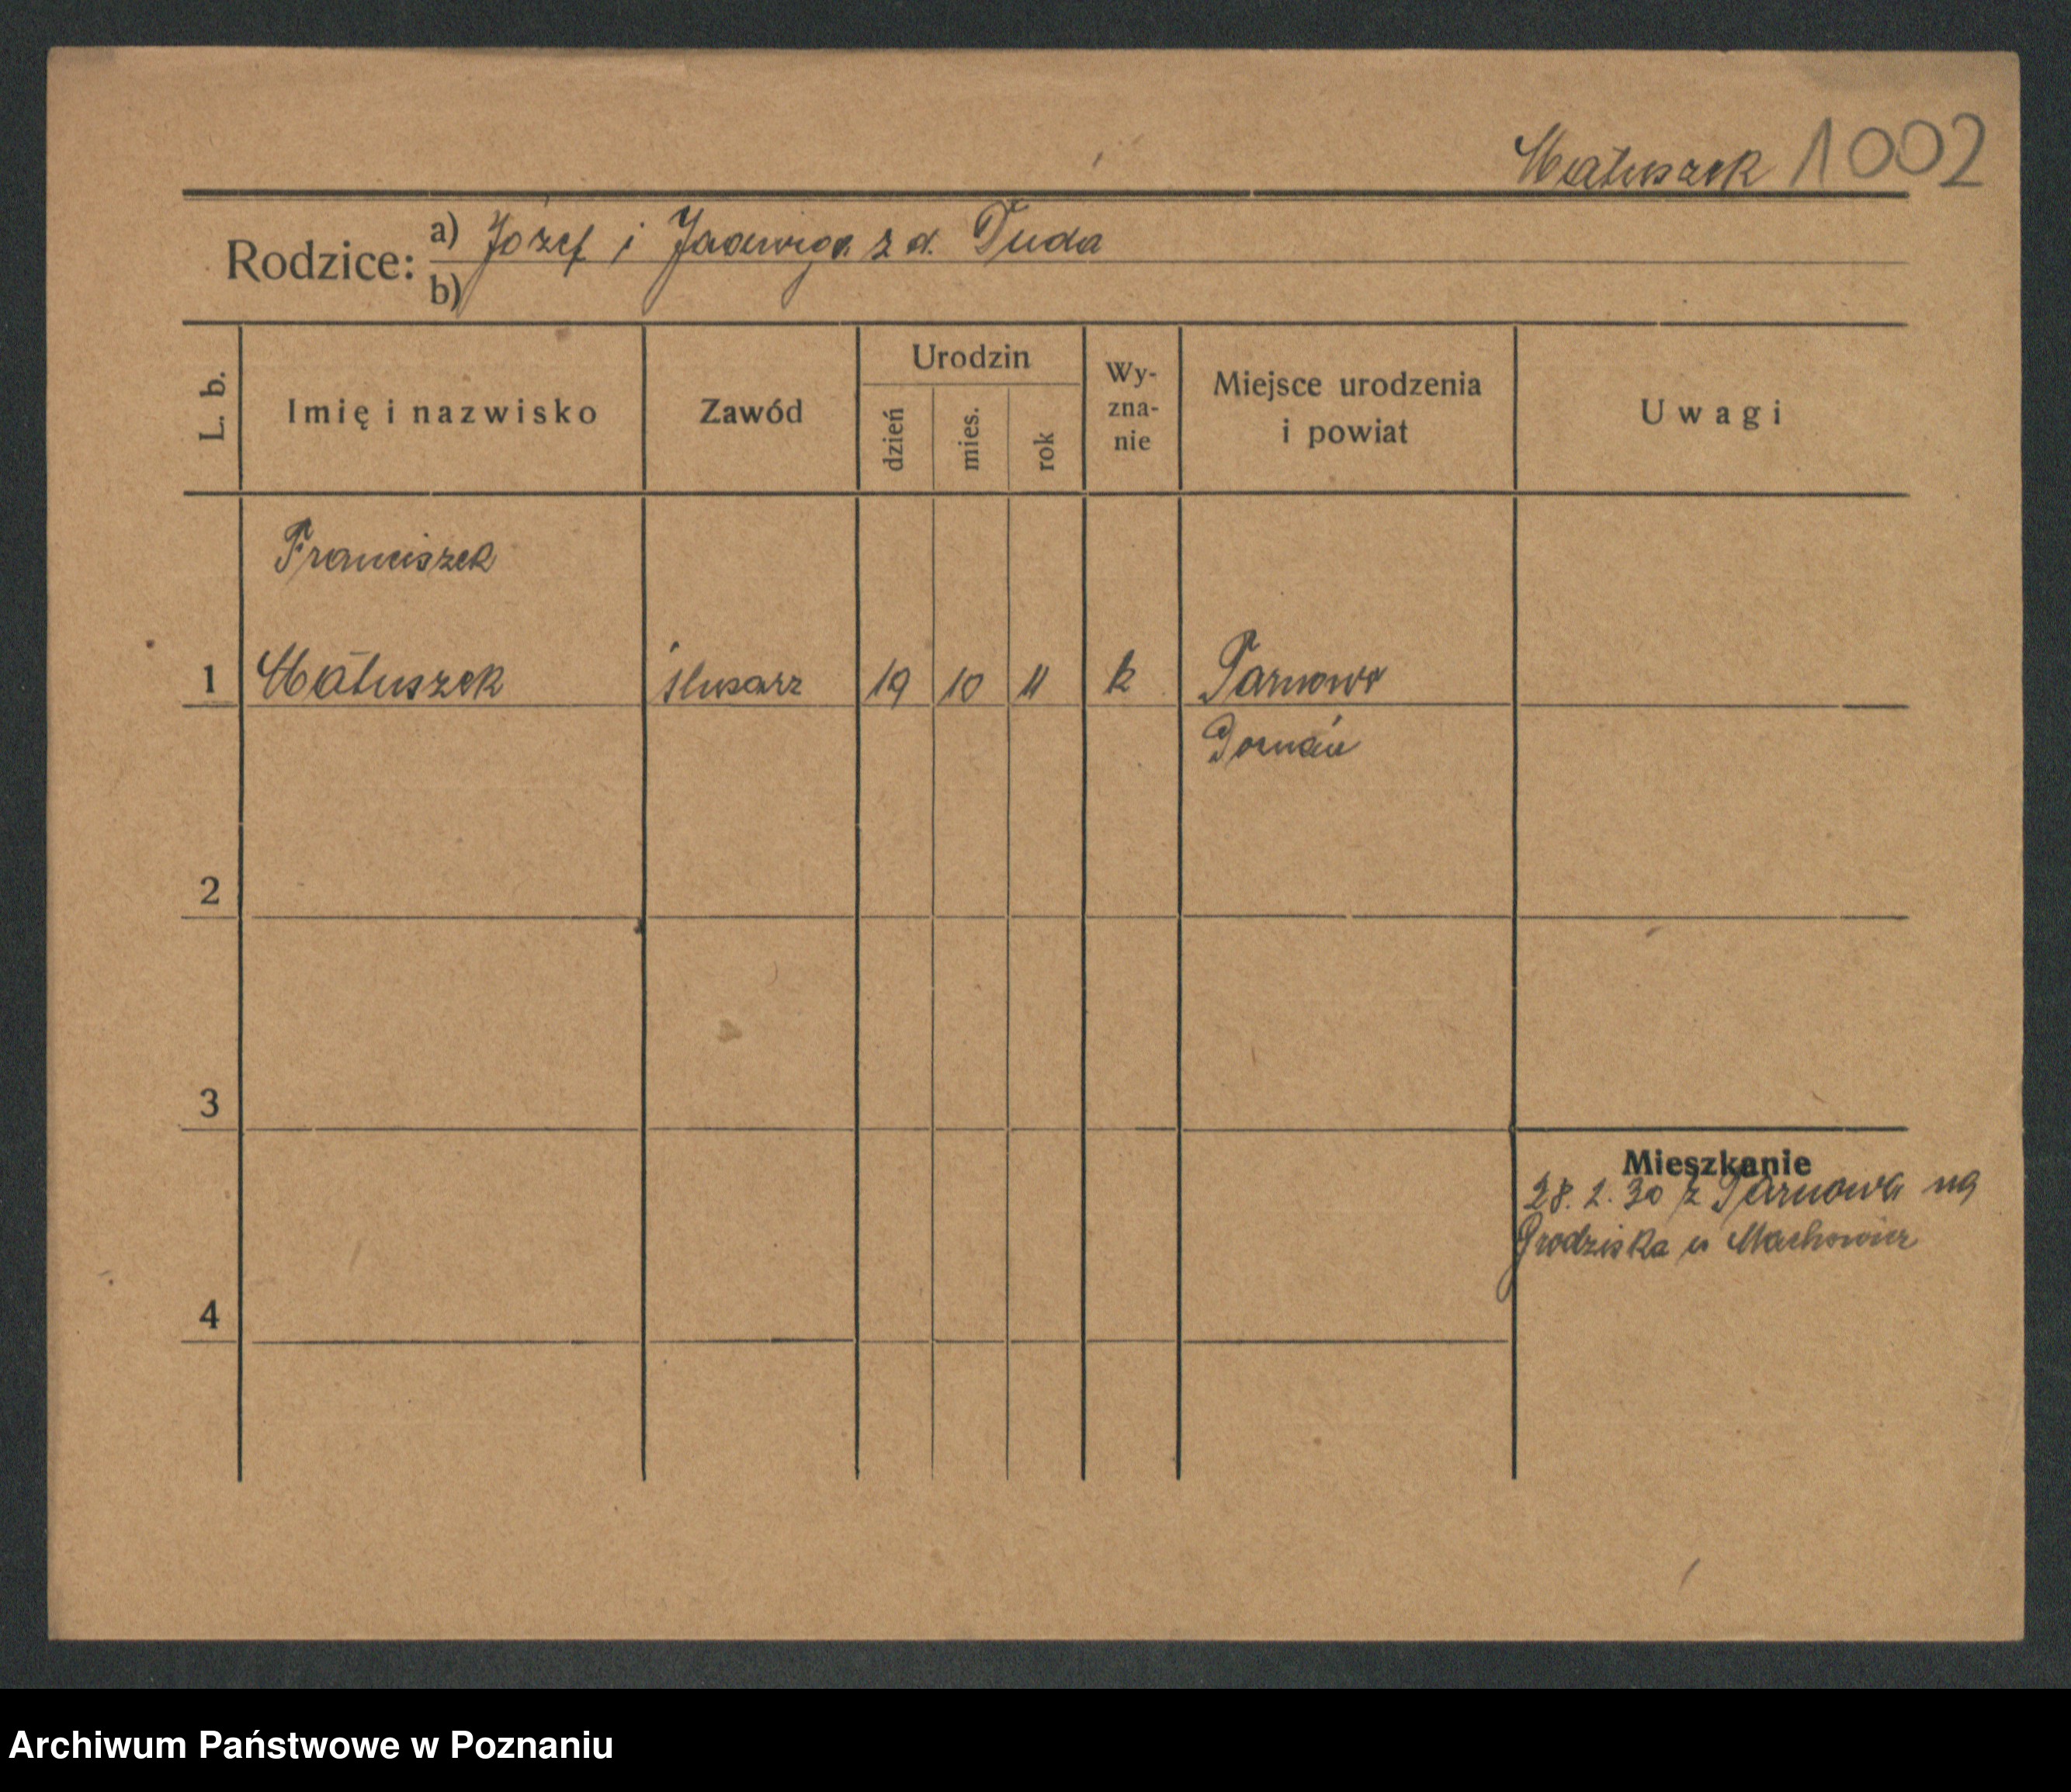 Matuszek 1002
Rodzice: a) Józef i Jadwiga z d. Duda
b)
L. b.
Imię i nazwisko
Zawód
Urodzin
dzień
mies.
rok
Wy-
zna-
nie
Miejsce urodzenia
i powiat
Uwagi
Franciszek
1 Matuszek ślusarz 19 10 11 k Tarnowo
Poznań
2
3
4
Mieszkanie
28. 2. 30 z Tarnowa na
Grodziska u
Archiwum Państwowe w Poznaniu